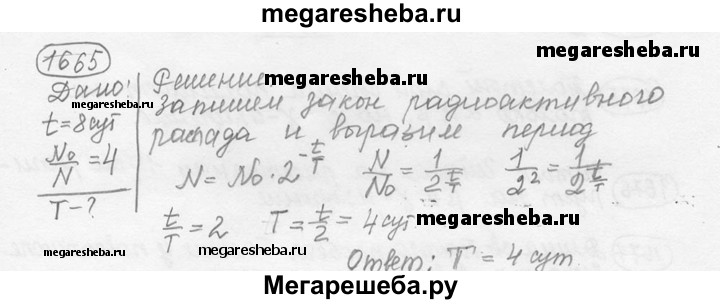 megaresheba.ru
1665
Дано:
megaresheba.ru
t=8сут
N₀/N = 4
T-?
Решение
megaresheba.ru
Запишем закон радиоактивного
распада и выразим период
N = N₀ · 2^(-t/T) N/N₀ = 1/2^(t/T) 1/2² = 1/2^(t/T)
megaresheba.ru
t/T = 2 T = t/2 = 4 сут
megaresheba.ru
megaresheba.ru
Ответ: T = 4 сут.
Мегарешеба.ру